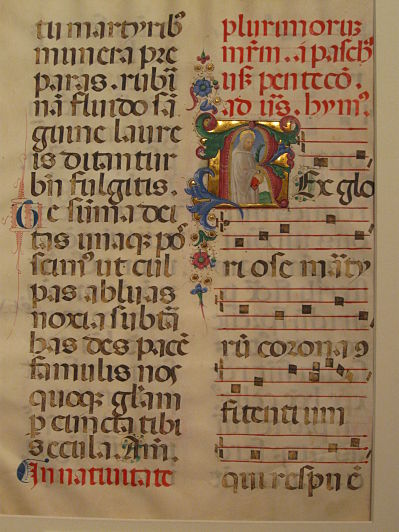 tu martyribꝰ
munera pre
paras. rubri
nã fluido sã
guine laure
is ditantur
bñ fulgitis.
Te sũma dei
tas unaqꝫ po
scimꝰ ut cul
pas abluas
noxia subtã
has des pacẽ
famulis nos
quoqꝫ gl̃iam
p cuncta tibi
secula. Am̃.
In natiuitate
plurimoruꝫ
mr̃m. a pascħ
usꝫ pentecõ.
ad us̃. hymꝰ.
Rex glo
riose mãty
rũ corona 9
fitentium
qui respuẽ